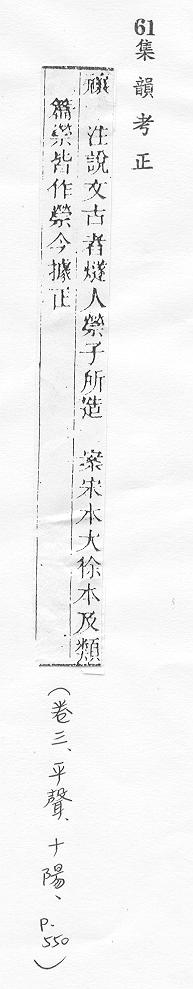 61集韻考正
禳 注說文古者燧人禜子所造 案宋本大徐本及類
篇禜皆作禜今據正
(卷三、平聲、十陽、p.550)